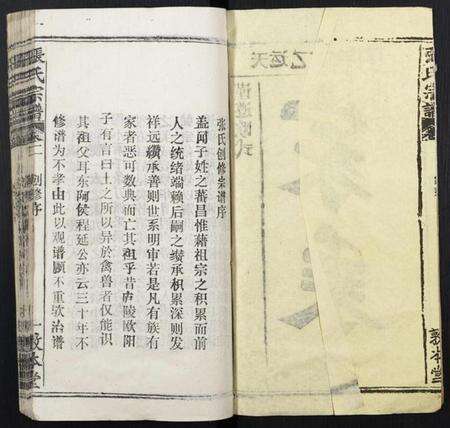 張氏宗譜
敦本堂
张氏创修宗谱序
盖闻子姓之蕃昌惟藉祖宗之积累而前
人之统绪端赖后嗣之缵承积累深则发
祥远缵承善则世系明审若是凡有族有
家者恶可数典而亡其祖乎昔庐陵欧阳
子有言曰士之所以异於禽兽者仅能识
其祖父耳东阿侯程延公亦云三十年不
修谱为不孝由此以观谱顾不重欤治谱
張氏宗譜 创修序 一 敦本堂